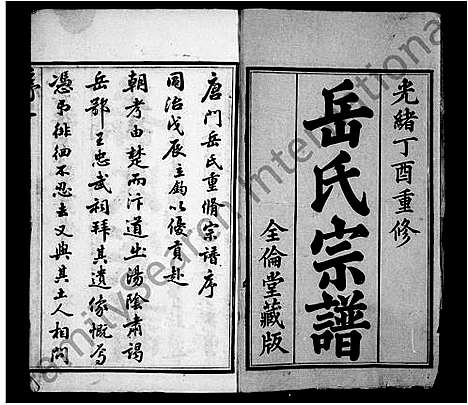 光緒丁酉重修
岳氏宗譜
全倫堂藏版
唐門岳氏重脩宗譜序
同治戊辰主鈞以優貢赴
朝考由楚而汴道出湯陰肅謁
岳鄂王忠武祠拜其遺像慨焉
憑弔徘徊不忍去又與其土人相問
序一
FamilySearch International